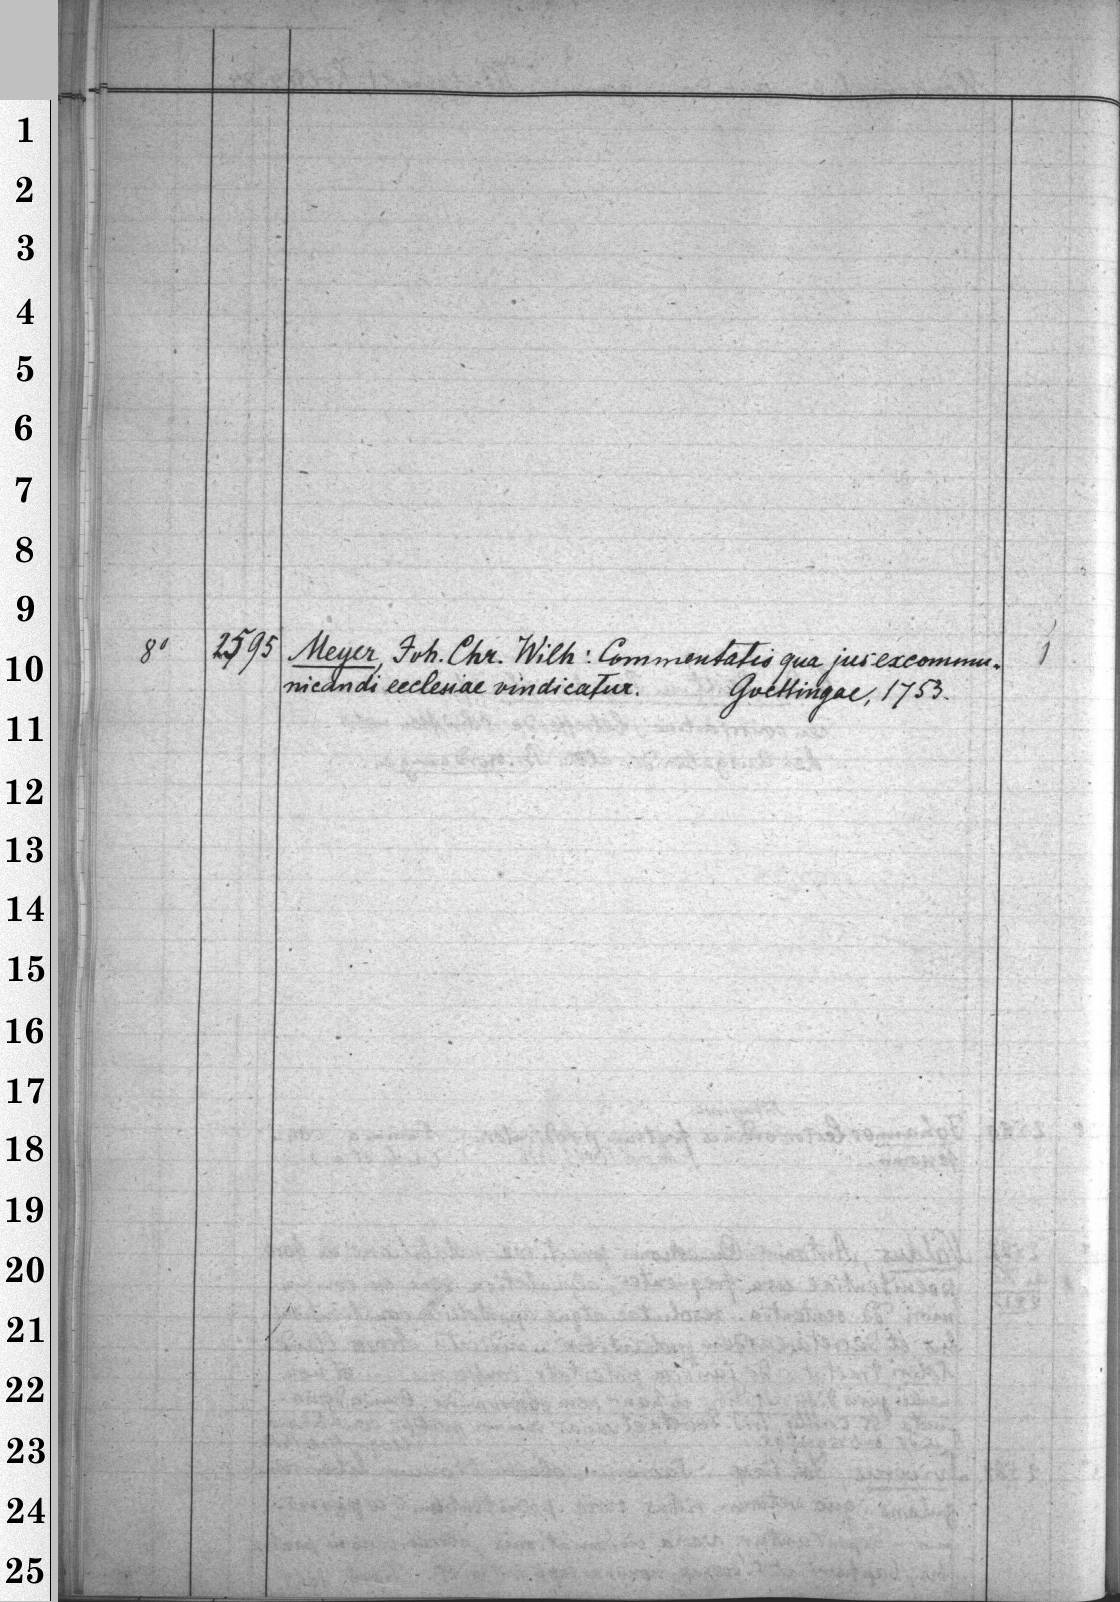 1
2
3
4
5
6
7
8
9
8° 2595 Meyer, Joh. Chr. Wilh: Commentatis qua jus excommu- 1
10
nicandi ecclesiae vindicatur. Goettingae, 1753.
11
12
13
14
15
16
17
18
19
20
21
22
23
24
25